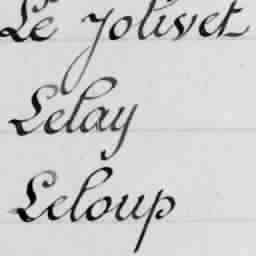 Le Jolivet
Lelay
Leloup